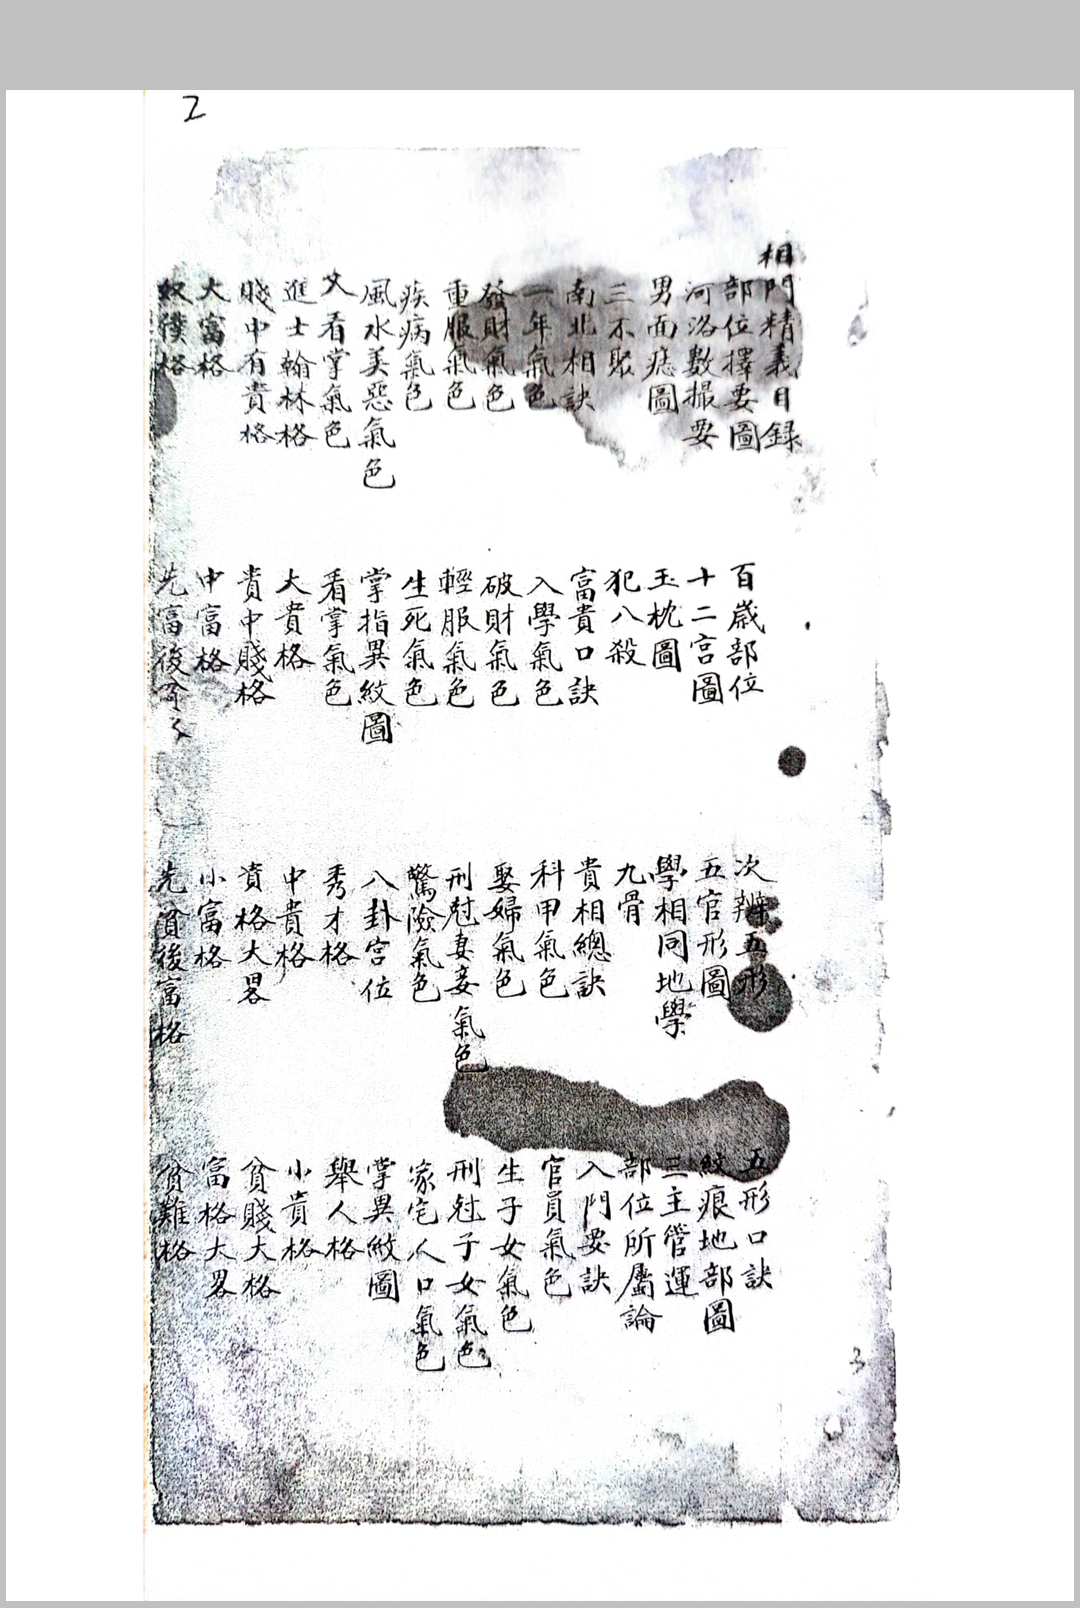 2
相門精義目録
部位擇要圖 百歲部位 次辨五形 五形口訣
河洛數撮要 十二宮圖 五官形圖 紋痕地部圖
男面痣圖 玉枕圖 學相同地學 三主管運
三不聚 犯八殺 九骨 部位所屬論
南北相訣 富貴口訣 貴相總訣 入門要訣
一年氣色 入學氣色 科甲氣色 官員氣色
發財氣色 破財氣色 娶婦氣色 生子女氣色
重服氣色 輕服氣色 刑尅妻妾氣色 刑尅子女氣色
疾病氣色 生死氣色 驚險氣色 家宅人口氣色
風水美惡氣色 掌指異紋圖 八卦宮位 掌異紋圖
又看掌氣色 看掌氣色 秀才格 舉人格
進士翰林格 大貴格 中貴格 小貴格
賤中有貴格 貴中賤格 資格大畧 貧賤大格
大富格 中富格 小富格 富格大畧
奴僕格 先富後 先貧後富格 貧難格
3